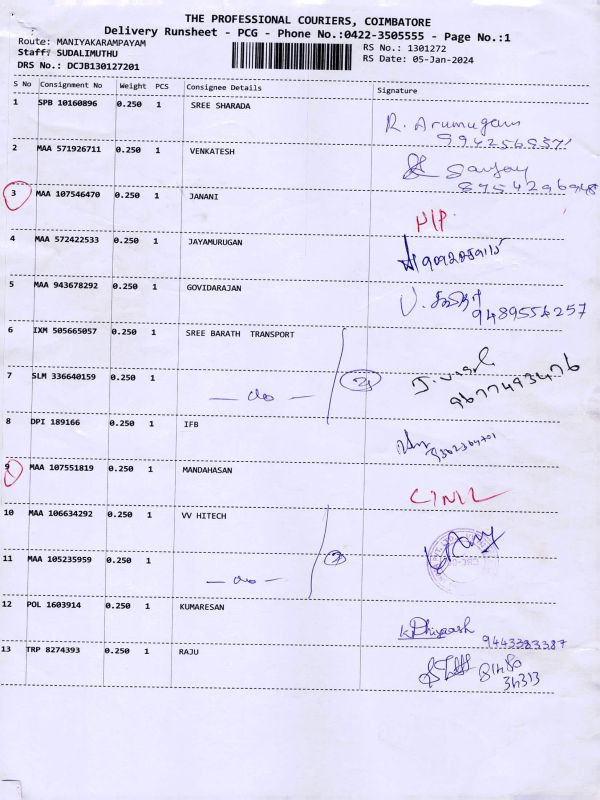 THE PROFESSIONAL COURIERS, COIMBATORE
Delivery Runsheet - PCG - Phone No.:0422-3505555 - Page No.:1
Route: MANIYAKARAMPAYAM
Staff: SUDALIMUTHU
DRS No.: DCJB130127201
RS No.: 1301272
RS Date: 05-Jan-2024
S No Consignment No Weight PCS Consignee Details Signature
1 SPB 10160896 0.250 1 SREE SHARADA R. Arumugam
2 MAA 571926711 0.250 1 VENKATESH Sanjay
3 MAA 107546470 0.250 1 JANANI
4 MAA 572422533 0.250 1 JAYAMURUGAN
5 MAA 943678292 0.250 1 GOVIDARAJAN
9489556257
6 IXM 505665057 0.250 1 SREE BARATH TRANSPORT
7 SLM 336640159 0.250 1 — do — 9677493476
8 DPI 189166 0.250 1 IFB
9 MAA 107551819 0.250 1 MANDAHASAN
10 MAA 106634292 0.250 1 VV HITECH
11 MAA 105235959 0.250 1 — do —
12 POL 1603914 0.250 1 KUMARESAN
9443383387
13 TRP 8274393 0.250 1 RAJU
34313